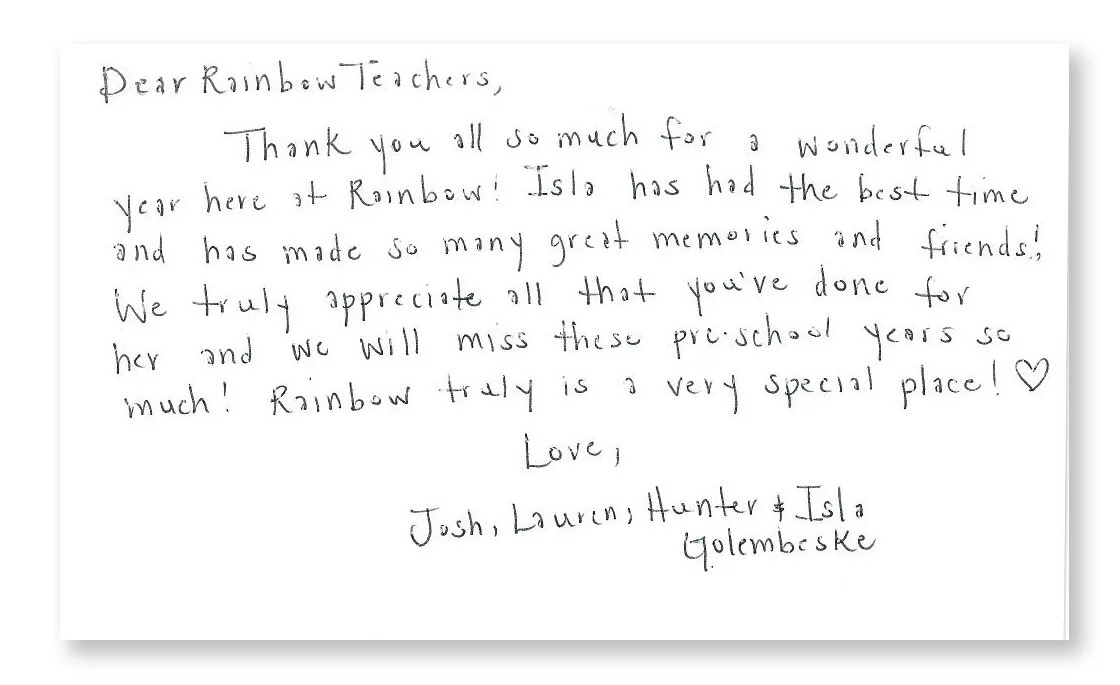 Dear Rainbow Teachers,
Thank you all so much for a wonderful
year here at Rainbow! Isla has had the best time
and has made so many great memories and friends!
We truly appreciate all that you've done for
her and we will miss these pre-school years so
much! Rainbow truly is a very special place! ♡
Love,
Josh, Lauren, Hunter & Isla
Golembeske